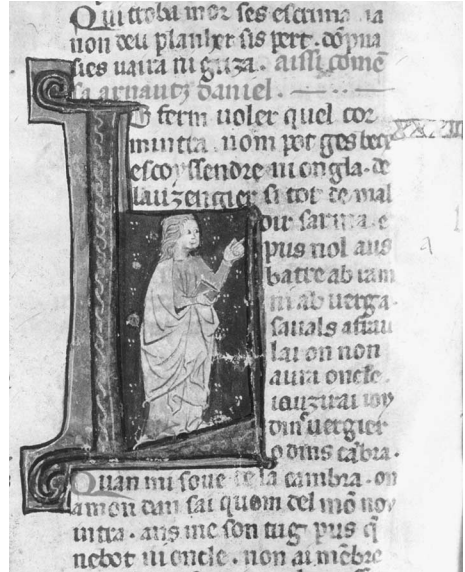 Qui troba mor ses escrima ia
non deu planher sis pert. dōpna
sies uaira ni griza. aissi comē
sa arnautz daniel.
Lo ferm uoler quel cor
mintra. nom pot ges becx
escoyssendre ni ongla. de
lauzengier si tot de mal
dir sarma. e
pus nol aus
batre ab ram
ni ab uerga.
sauals a frau
lai on non
aura oncle.
iauzirai ioy
dins uergier
o dins cābra.
Quan mi soue de la cambra. on
a mon dan sai quom del mō noy
intra. ans me son tug pus q̄
nebot ni oncle. non ai mēbre